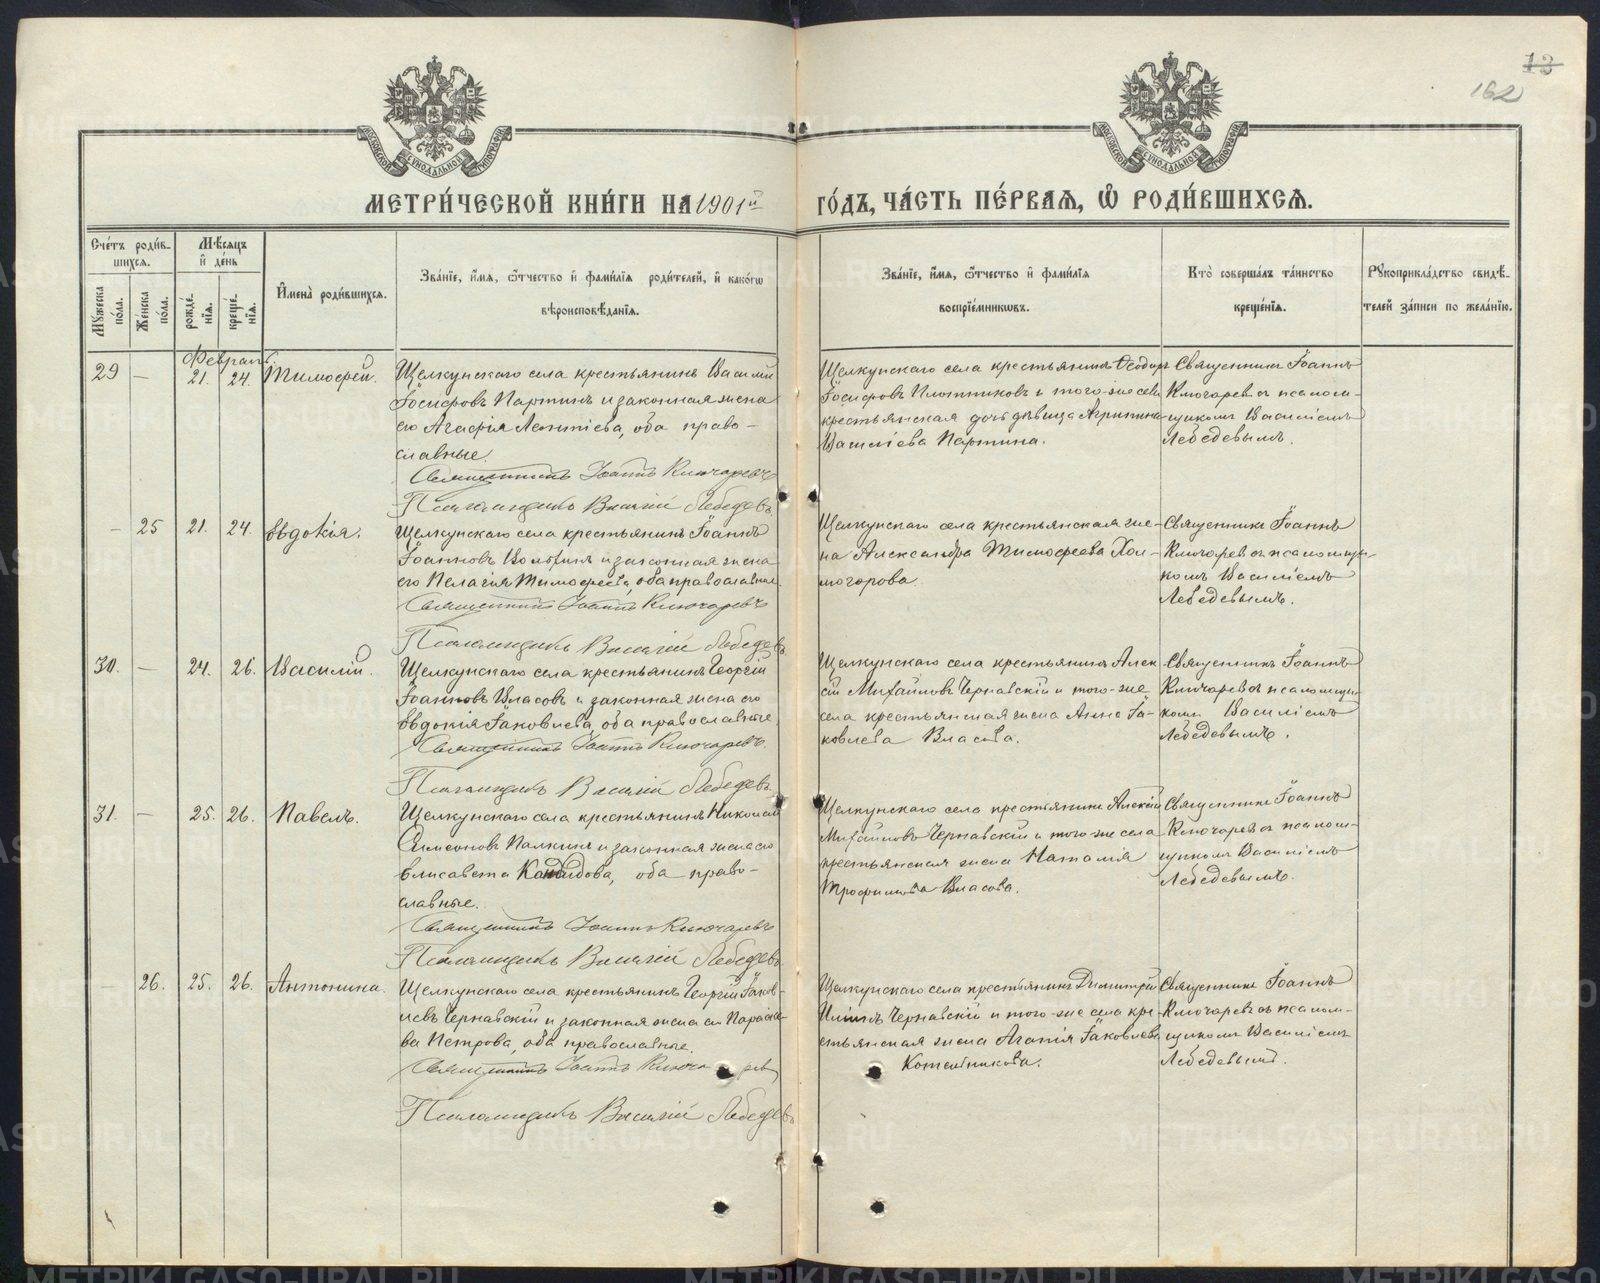 13
162
МОСКОВСКОЙ СѴНОДАЛЬНОЙ ТИПОГРАФІИ
МОСКОВСКОЙ СѴНОДАЛЬНОЙ ТИПОГРАФІИ
МЕТРИ́ЧЕСКОЙ КНИ́ГИ НА 1901й ГО́ДЪ, ЧА́СТЬ ПЕ́РВАЯ, Ѡ РОДИ́ВШИХСЯ.
Сче́тъ роди́в-
шихся.
Мꙋжеска по́ла.
Же́нска по́ла.
Мѣ́сяцъ
и҆ день
рожде́-
нїя.
креще́-
нїя.
И҆мена̀ роди́вшихся.
Зва́нїе, и҆́мя, ѻ҆́тчество и҆ фами́лїя роди́телей, и҆ како́гѡ
вѣроисповѣ́данїя.
Зва́нїе, и҆́мя, ѻ҆́тчество и҆ фами́лїя
воспрїе́мникѡвъ.
Кто̀ соверша́лъ та́инство
креще́нїя.
Рꙋкоприкла́дство свидѣ́-
телей за́писи по жела́нїю.
Февраль.
29 — 21. 24. Тимофей.
Щелкунскаго села крестьянинъ Василій
Іосифовъ Партинъ и законная жена
его Агафія Леонтіева, оба право-
славные.
Священникъ Іоаннъ Ключаревъ
Псаломщикъ Василій Лебедевъ
Щелкунскаго села крестьянинъ Ѳеодоръ
Іосифовъ Плотниковъ и того-же села
крестьянская дочь дѣвица Агрипина
Василіева Партина.
Священникъ Іоаннъ
Ключаревъ съ псалом-
щикомъ Василіемъ
Лебедевымъ.
— 25 21. 24. Евдокія.
Щелкунскаго села крестьянинъ Іоаннъ
Іоанновъ и законная жена
его Пелагія Тимофеева, оба православные.
Священникъ Іоаннъ Ключаревъ
Псаломщикъ Василій Лебедевъ
Щелкунскаго села крестьянская же-
на Александра Тимофеева Хол-
могорова.
Священникъ Іоаннъ
Ключаревъ съ псаломщи-
комъ Василіемъ
Лебедевымъ.
30. — 24. 26. Василій.
Щелкунскаго села крестьянинъ Георгій
Іоанновъ Власовъ и законная жена его
Евдокія Іаковлева, оба православные
Священникъ Іоаннъ Ключаревъ.
Псаломщикъ Василій Лебедевъ
Щелкунскаго села крестьянинъ Алек-
сій Михайловъ Чернавскій и того-же
села крестьянская жена Анна Іа-
ковлева Власова.
Священникъ Іоаннъ
Ключаревъ съ псаломщи-
комъ Василіемъ
Лебедевымъ.
31. — 25. 26. Павелъ.
Щелкунскаго села крестьянинъ Николай
Симеоновъ Палкинъ и законная жена его
Елисавета Кандидова, оба право-
славные.
Священникъ Іоаннъ Ключаревъ
Псаломщикъ Василій Лебедевъ
Щелкунскаго села крестьянинъ Алексій
Михайловъ Чернавскій и того-же села
крестьянская жена Наталія
Трофимова Власова.
Священникъ Іоаннъ
Ключаревъ съ псалом-
щикомъ Василіемъ
Лебедевымъ.
— 26. 25. 26. Антонина.
Щелкунскаго села крестьянинъ Георгій Іаков-
левъ Чернавскій и законная жена его Параске-
ва Петрова, оба православные.
Священникъ Іоаннъ Ключаревъ
Псаломщикъ Василій Лебедевъ
Щелкунскаго села крестьянинъ Димитрій
Иліинъ Чернавскій и того-же села кре-
стьянская жена Агапія Іаковлева
Котельникова.
Священникъ Іоаннъ
Ключаревъ съ псалом-
щикомъ Василіемъ
Лебедевымъ.
METRIKI.GASO-URAL.RU